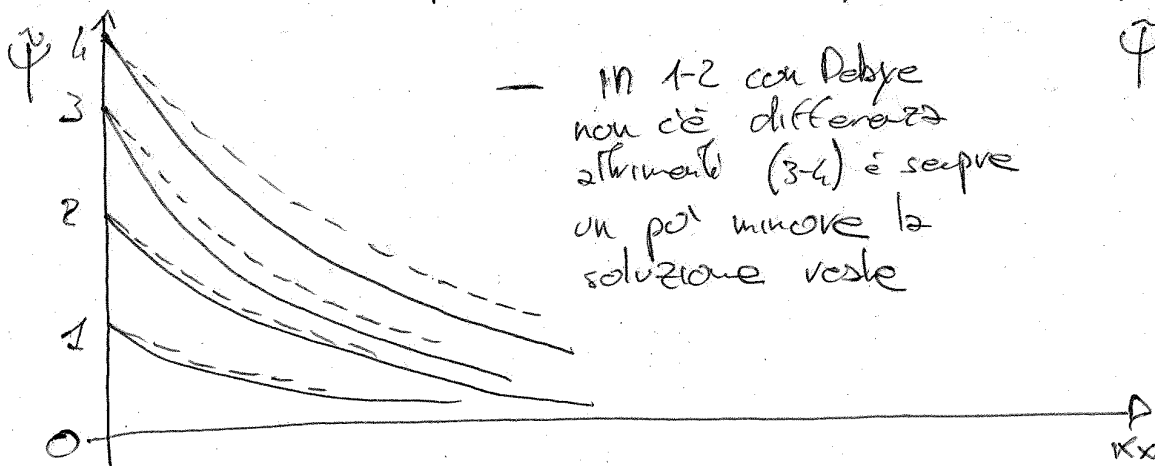 ψ̃ 4
— in 1-2 con Debye
ψ̃
3
non c'è differenza
altrimenti (3-4) è sempre
2
un po' minore la
soluzione reale
1
0
κx